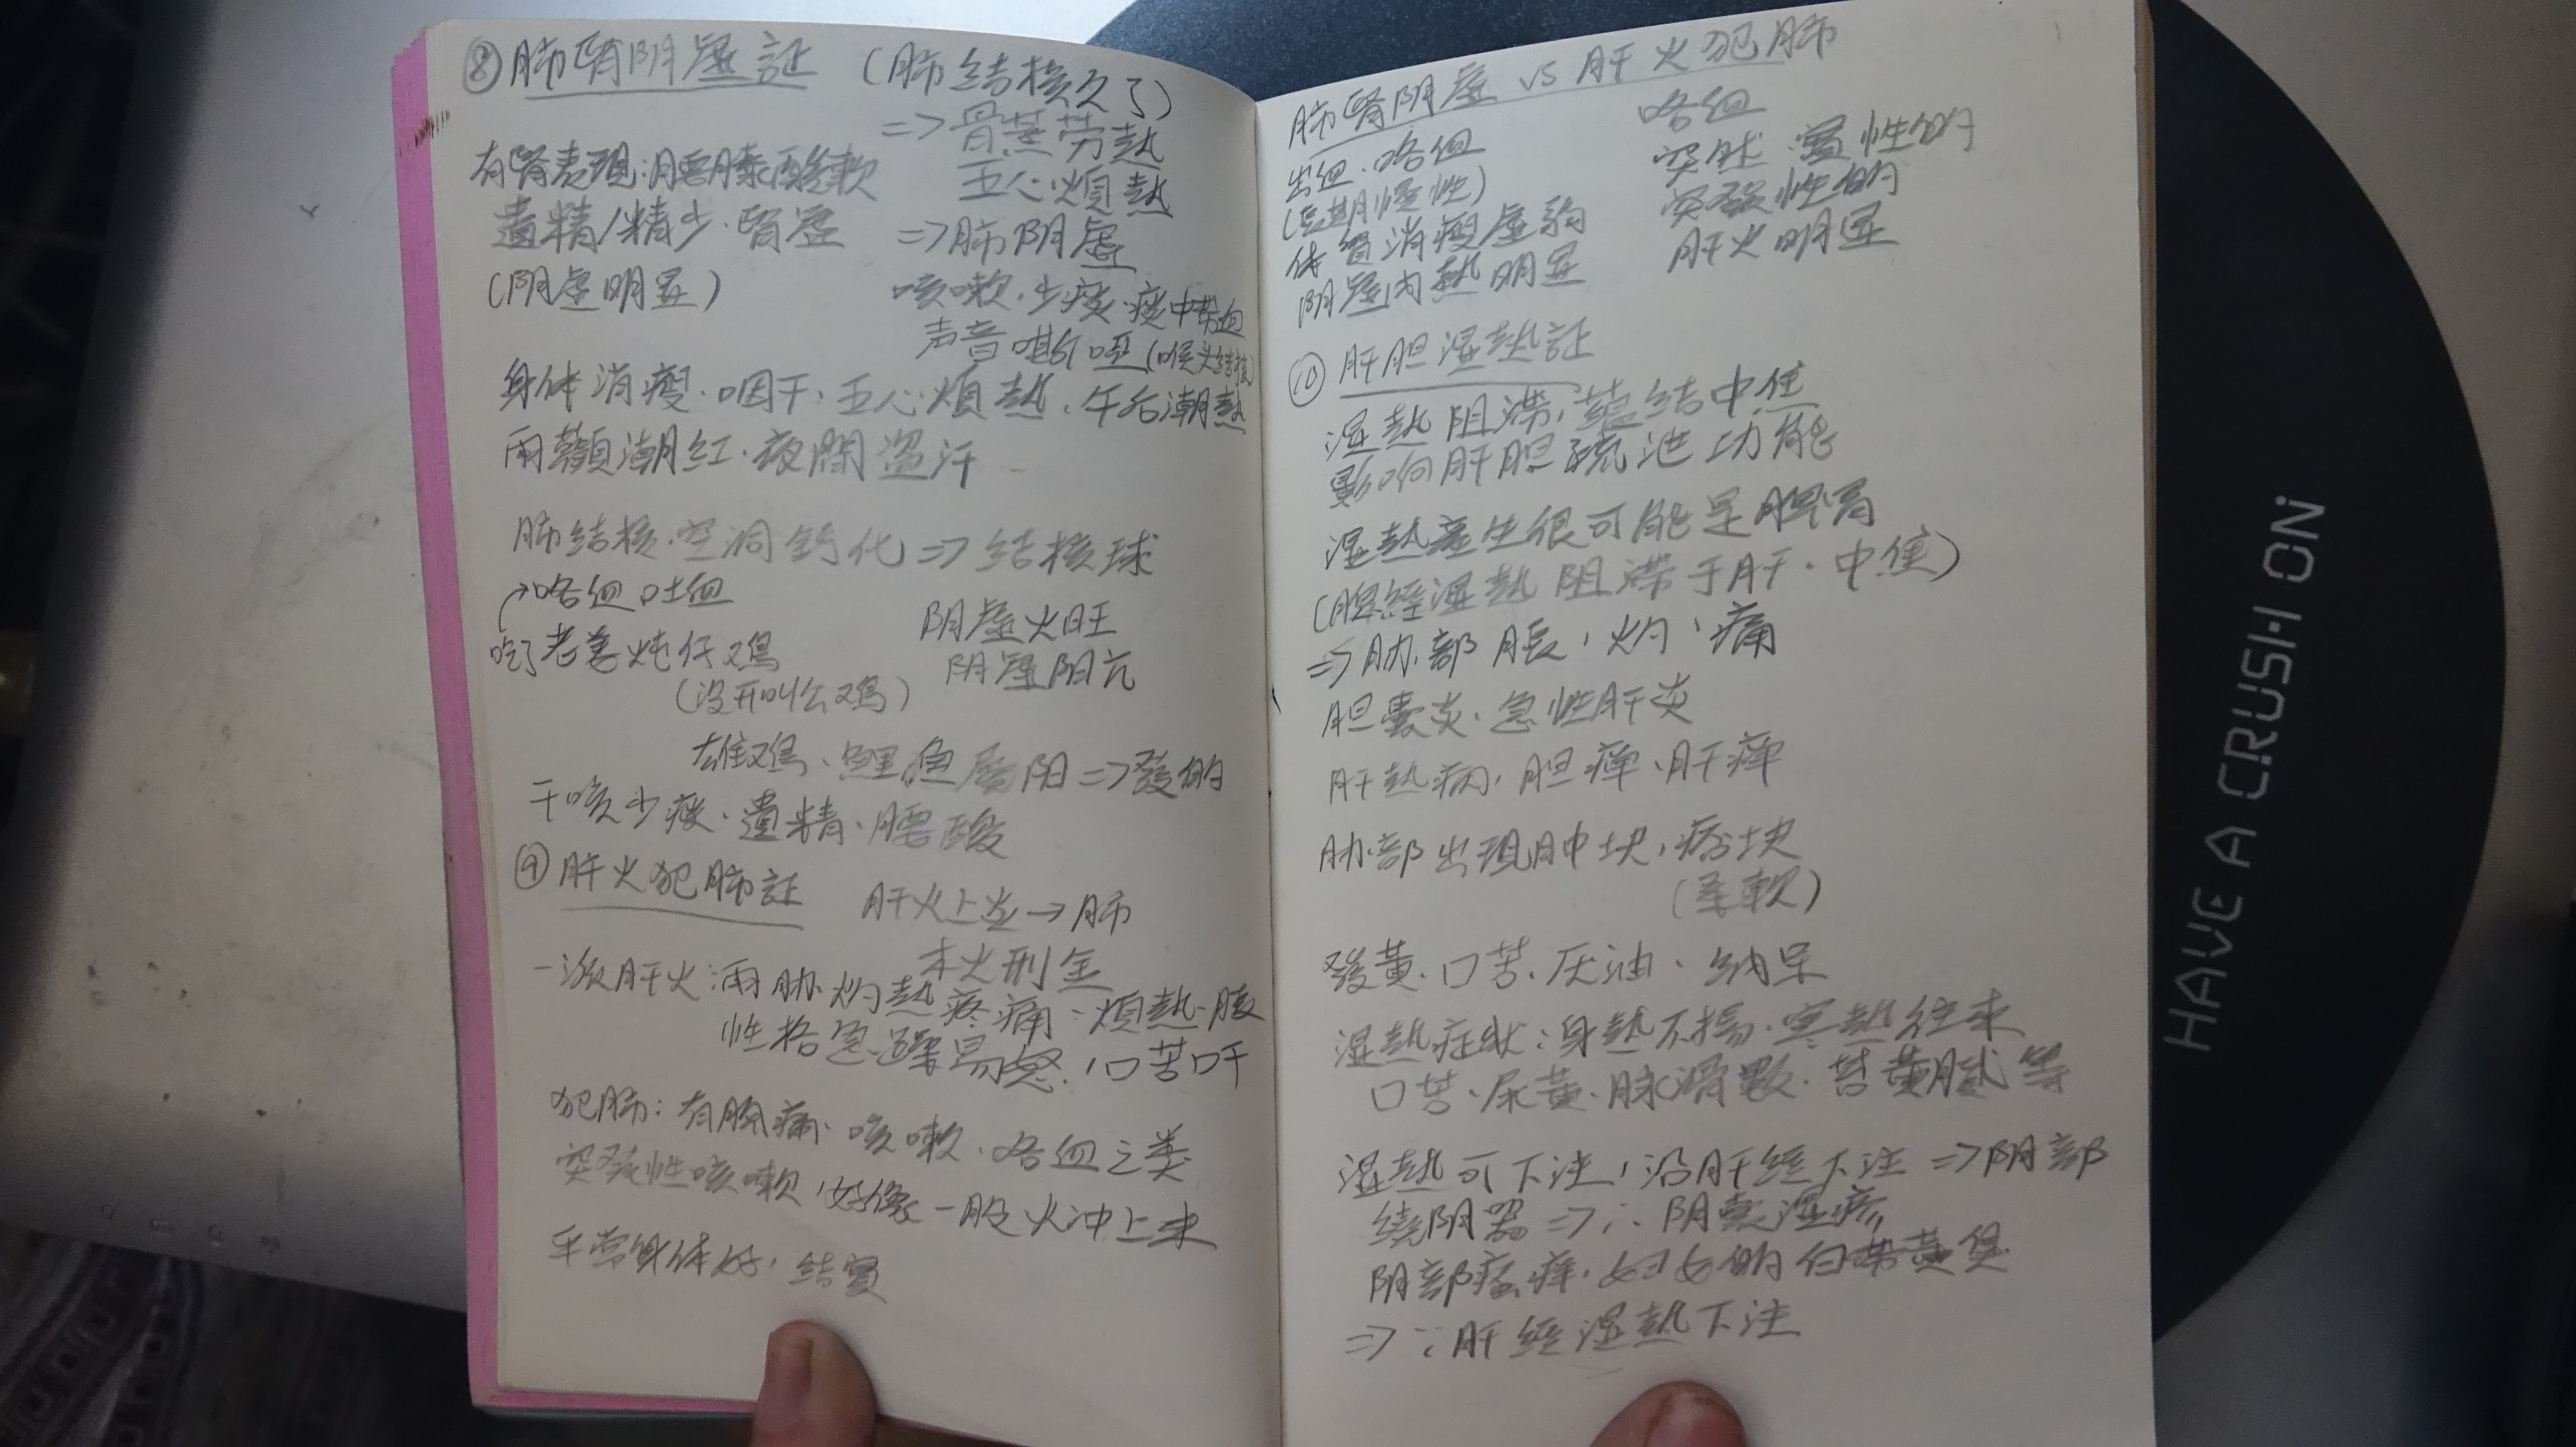 ⑧肺腎阴虚証 (肺结核久了)
=>骨蒸劳熱
五心煩熱
有腎表現:腰膝酸軟
遺精/精少·腎虚
(阴虚明显)
=>肺阴虚
咳嗽·少痰·痰中带血
声音嘶哑(喉头结核)
身体消瘦·咽干·五心煩熱·午后潮熱
兩颧潮红·夜間盗汗
肺结核·空洞钙化=>结核球
咯血吐血
吃了老姜炖仔鸡
(没开叫公鸡)
阴虚火旺
阴虚阳亢
雄鸡、鲤鱼屬阳=>發的
干咳少痰·遺精·腰酸
⑨肝火犯肺証
肝火上炎→肺
木火刑金
一派肝火:兩肋灼熱疼痛、煩熱
性格急躁易怒、口苦口干
犯肺:有胸痛、咳嗽、咯血之类
突發性咳嗽,好像一股火冲上来
平常身体好,结實
肺腎阴虚 vs 肝火犯肺
出血·咯血
(長期慢性)
体質消瘦虚弱
阴虚内熱明显
咯血
突然·實性的
突發性的
肝火明显
⑩肝胆湿熱証
湿熱阻滞,蕴结中焦
影响肝胆疏泄功能
湿熱產生很可能是脾胃
(脾經湿熱阻滞于肝·中焦)
=>肋部脹、灼、痛
胆囊炎·急性肝炎
肝熱病,胆瘅、肝瘅
肋部出現肿块,痞块
(柔軟)
發黃·口苦·厌油·纳呆
湿熱症状:身熱不揚·寒熱往来
口苦·尿黃·脉滑數·苔黃腻等
湿熱可下注,沿肝經下注=>阴部
绕阴器=>∴阴囊湿疹
阴部瘙痒,妇女的白带黃臭
=>∵肝經湿熱下注
HAVE A CRUSH ON